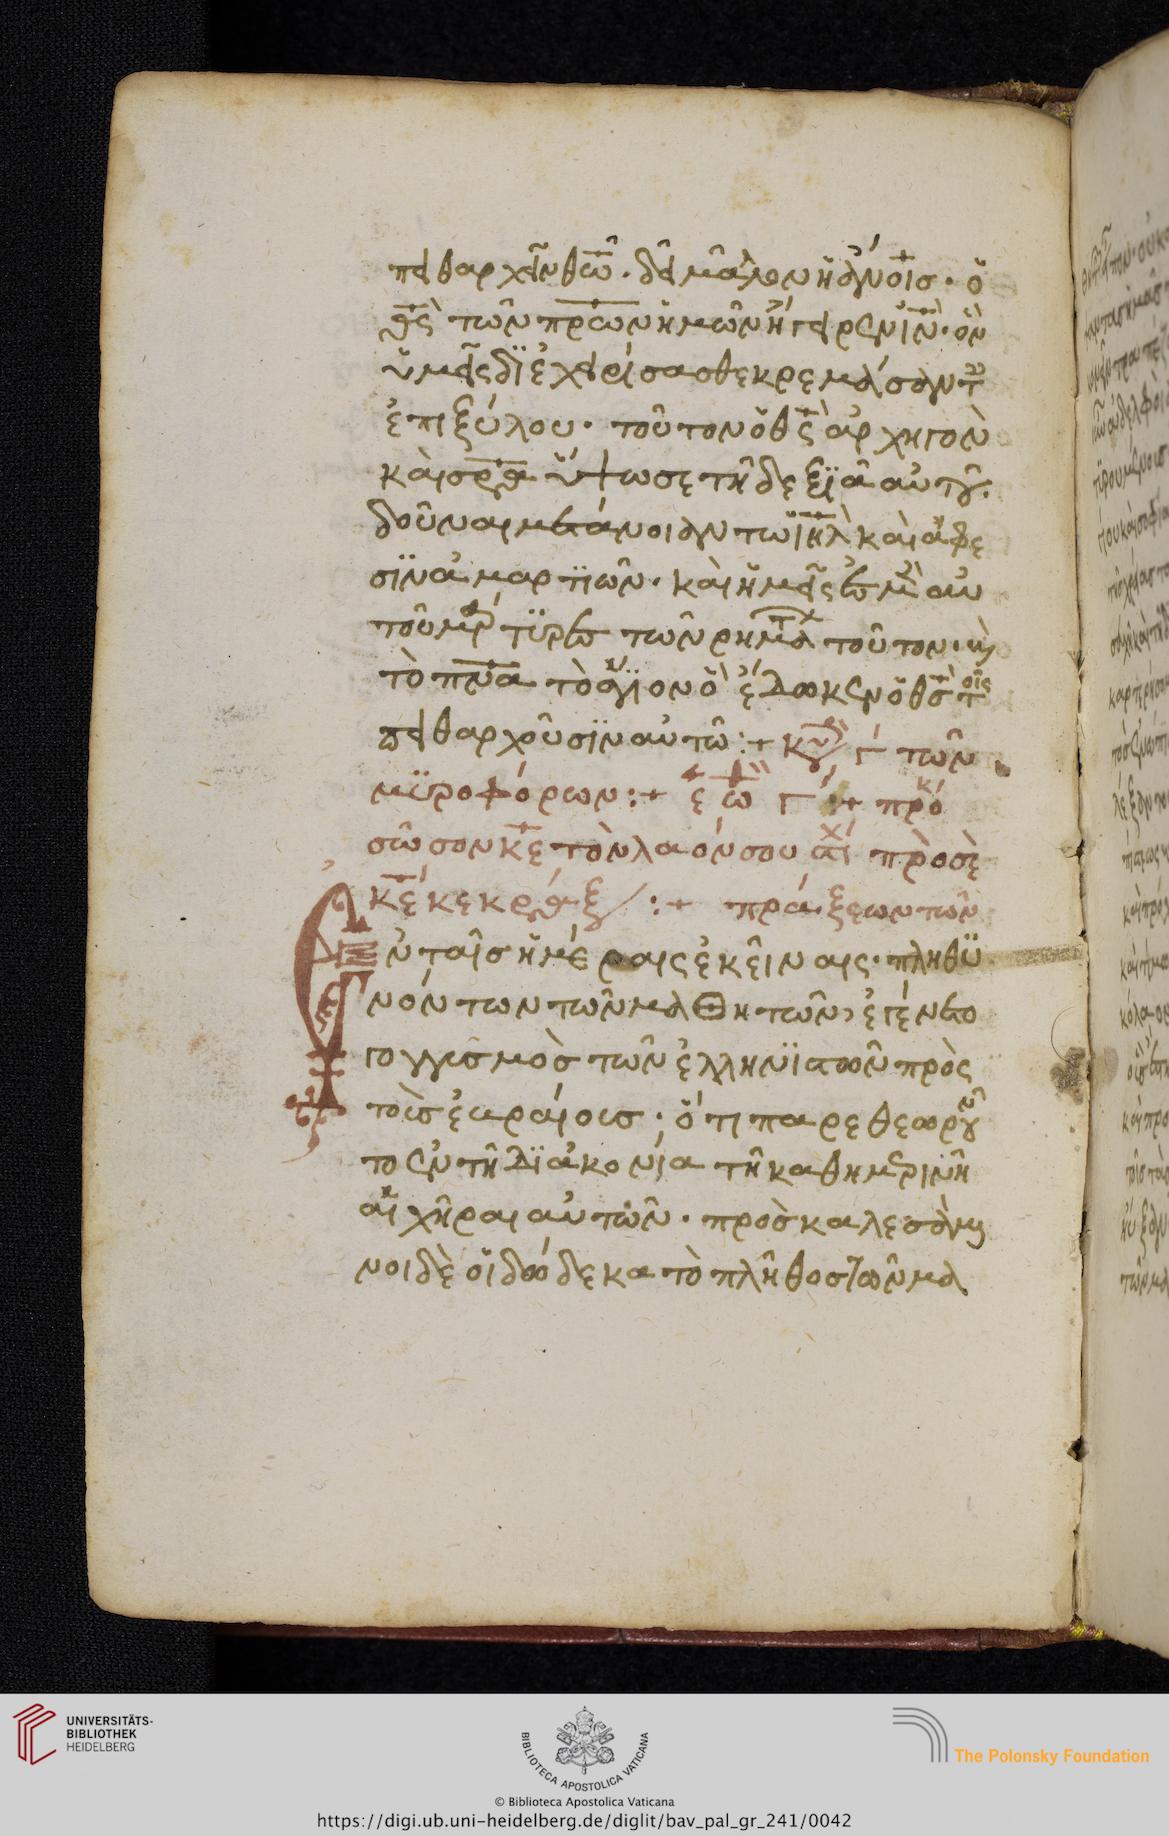 πειθαρχεῖν θω̅. δεῖ μᾶλλον ἢ ἀνοις. ὁ
θς̅ τῶν πρω̅ν ἡμῶν ἤγειρεν ιν̅. ὃν
ὑμεῖς διεχειρίσασθε κρεμάσαντ
ἐπι ξύλου. τοῦτον ὁ θς̅ ἀρχηγὸν
καὶ σρα̅ ὕψωσε τῆ δεξϊᾶ αὐτοῦ.
δοῦναι μετάνοιαν τῶ ιηλ̅ καὶ ἄφε
σϊν ἁμαρτϊῶν. καὶ ἡμεῖς ἐσμὲν αὐ
τοῦ μάρτϋρες τῶν ρημάτ τοῦτον. κ
τὸ πνα̅ τὸ ἅγϊον ὃ ἔδωκεν ὁ θς̅ τοῖς
πειθαρχοῦσϊν αὐτῶ :+ κυ γ́ τῶν
μϋροφόρων :+ γ́ :+ πρό
σῶσον κε̅ τὸν λαόν σου στί πρὸς σὲ
κε̅ κεκράξ :+ πράξεων τῶν
Ἐν ταῖς ἡμέραις ἐκεῖναις. πληθϋ
νόντων τῶν μαθητῶν, ἐγένετο
γογγισμὸς τῶν ἑλληνϊστῶν πρὸς
τοὺς ἑβραίους. ὅτι παρεθεωροῦν
το ἐν τῆ δϊακονία τῆ καθημερινῆ
αἱ χῆραι αὐτῶν. προσκαλεσάμε
νοι δὲ οἱ δώδεκα τὸ πλῆθος τῶν μα
UNIVERSITÄTS-
BIBLIOTHEK
HEIDELBERG
BIBLIOTECA APOSTOLICA VATICANA
The Polonsky Foundation
© Biblioteca Apostolica Vaticana
https://digi.ub.uni-heidelberg.de/diglit/bav_pal_gr_241/0042